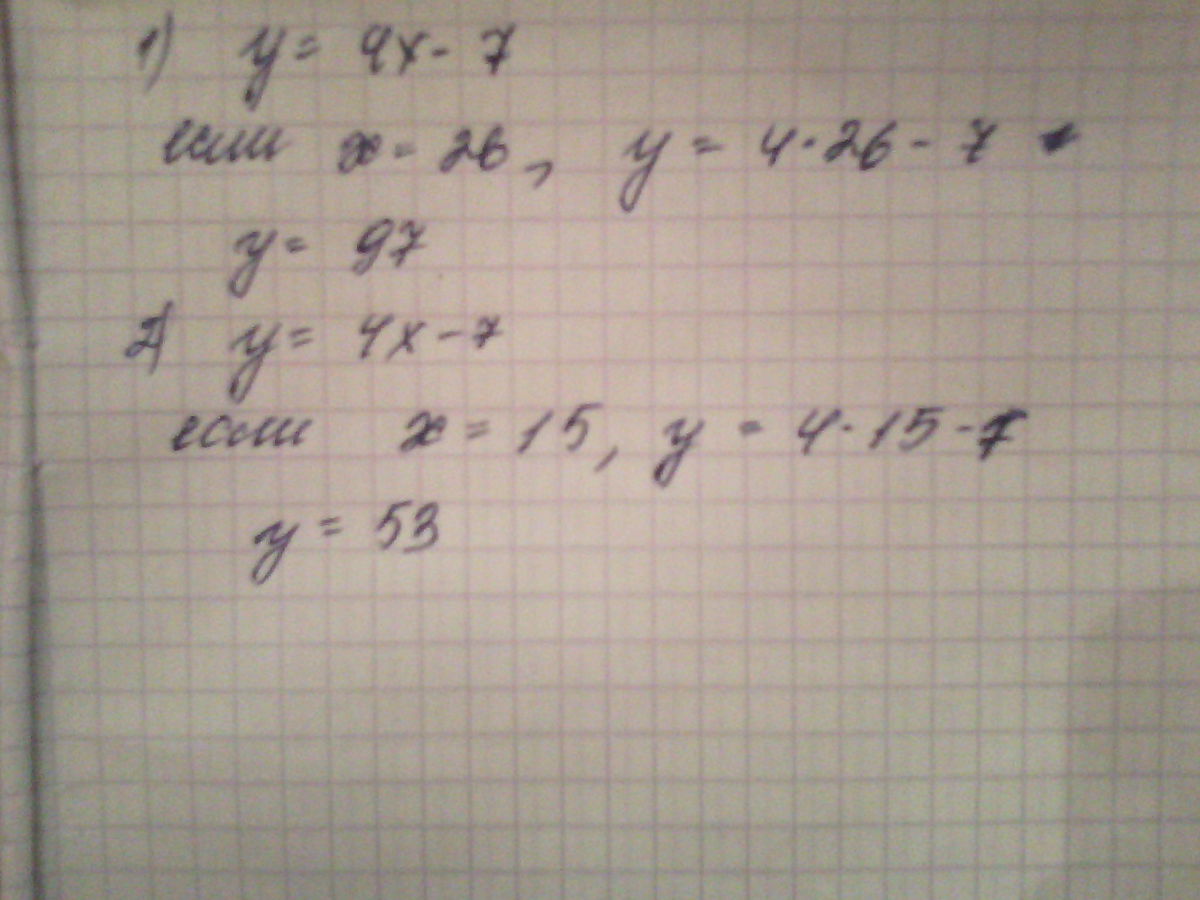 1) y = 4x - 7
если x = 26, y = 4·26 - 7
y = 97
2) y = 4x - 7
если x = 15, y = 4·15 - 7
y = 53